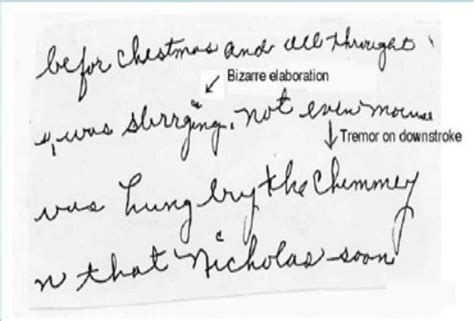 befor chestmas and all throught
Bizarre elaboration
was not even mouse
Tremor on downstroke
was hung bry the Chemmey
n that Nicholas soon